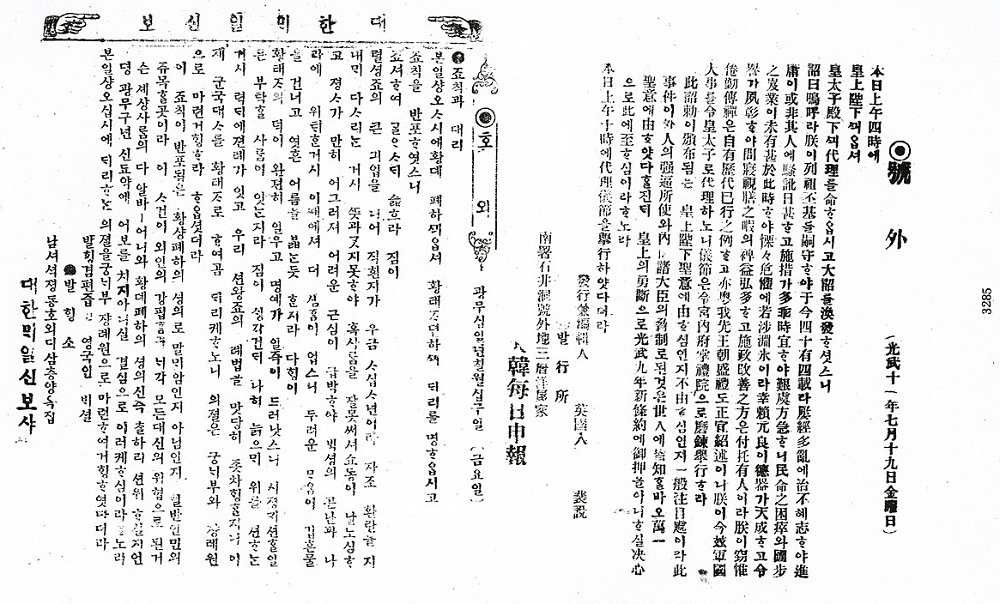 ◉號外 (光武十一年七月十九日金曜日)
本日上午四時에
皇上陛下ᄭᅴ옵셔
皇太子殿下ᄭᅴ代理를命ᄒᆞ옵시고大詔를渙發ᄒᆞ셧스니
詔曰嗚呼라朕이列祖丕基를嗣守ᄒᆞ야于今四十有四載라屢經多亂에治不徯志ᄒᆞ야進
庸이或非其人에騷訛日甚ᄒᆞ고施措가多乖時宜ᄒᆞ야艱虞方急ᄒᆞ니民命之困瘁와國步
之岌業이未有甚於此時ᄒᆞ야慄々危懼에若涉淵氷이라幸賴元良이德器가天成ᄒᆞ고令
譽가夙彰ᄒᆞ야問寢視膳之暇의裨益弘多ᄒᆞ고施政改善之方은付托有人이라朕이窃惟
倦勤傳禪은自有歷代已行之例ᄒᆞ고亦粤我先王朝盛禮도正宜紹述이니朕이今玆軍國
大事를令皇太子로代理ᄒᆞ노니儀節은令宮內府掌禮院으로磨鍊擧行ᄒᆞ라
此詔勅이頒布됨은 皇上陛下聖意에由ᄒᆞ심인지不由ᄒᆞ심인지一般注目處이라此
事件이外人의强逼所使와內 諸大臣의脅制로된것은世人에 知ᄒᆞᆯ바오萬一
聖意에由ᄒᆞ얏다ᄒᆞᆯ진ᄃᆡ 皇上의勇斷으로光武九年新條約에御押 아니ᄒᆞ실决心
으로此에至ᄒᆞ심이라ᄒᆞ노라
本日上午十時에代理儀節을擧行ᄒᆞ얏다더라
發行兼編輯人 英國人 裴說
發行所
南署石井洞號外地三層洋屋家
大韓每日申報
대한ᄆᆡ일신보
◉호외 광무십일년칠월십구일 (금요일)
●죠칙과 대리
본일샹오ᄉᆞ시에황뎨 폐하ᄭᅴ옵셔 황태ᄌᆞ뎐하ᄭᅴ ᄃᆡ리를 명ᄒᆞ옵시고
죠칙을 반포ᄒᆞ엿스니
죠셔ᄒᆞ여 ᄀᆞᆯᄋᆞ스ᄃᆡ 슯흐라 짐이
렬셩죠의 큰 긔업을 니어 직흰지가 우금 ᄉᆞ십ᄉᆞ년이라 자조 환란을 지
내ᄆᆡ 다ᄉᆞ리ᄂᆞᆫ 거시 ᄯᅳᆺ과ᄀᆞᆺ지못ᄒᆞ야 혹사ᄅᆞᆷ을 잘못써셔쇼동이 날노심ᄒᆞ
고 졍ᄉᆞ가 만히 어그러져 어려운 근심이 급박ᄒᆞ야 ᄇᆡᆨ셩의 곤난과 나
라에 위ᄐᆡᄒᆞᆫ거시 이ᄯᅢ에셔 더 심ᄒᆞᆷ이 업스니 두려운 ᄆᆞᄋᆞᆷ이 깁흔물
을 건너고 엷은 어름을 ᄇᆞᆲ는듯 ᄒᆞᆫ지라 다ᄒᆡᆼ이
황태ᄌᆞ의 덕이 완젼히 일우고 명예가 일즉이 드러낫스니 시졍ᄀᆡ션ᄒᆞᆯ일
은 부탁ᄒᆞᆯ 사ᄅᆞᆷ이 잇ᄂᆞᆫ지라 짐이 ᄉᆡᆼ각건ᄃᆡ 나히 늙으ᄆᆡ 위를 젼ᄒᆞᄂᆞᆫ
거시 력ᄃᆡ에젼례가 잇고 우리 션왕죠의 례법을 맛당히 좃차ᄒᆡᆼᄒᆞᆯ지니 이
제 군국대ᄉᆞ를 황태ᄌᆞ로 ᄒᆞ여곰 ᄃᆡ리케ᄒᆞ노니 의졀은 궁ᄂᆡ부와 쟝례원
으로 마련거ᄒᆡᆼᄒᆞ라 ᄒᆞ옵셧더라
이 죠칙이반포됨은 황샹폐하의 셩의로 말ᄆᆡ암인지 아님인지 일반인민의
쥬목ᄒᆞᆯ곳이라 이 ᄉᆞ건이 외인의 강핍ᄒᆞᆷ과 ᄂᆡ각 모든대신의 위협으로 된거
슨 세샹사ᄅᆞᆷ의다 알바ㅣ어니와 황뎨폐하의 셩의신즉 ᄎᆞᆯ하리 젼위 ᄒᆞᆯ지언
뎡 광무구년 신됴약에 어보를 치지아니실 결심으로 이러케ᄒᆞ심이라ᄒᆞ노라
본일샹오십시에 ᄃᆡ리ᄒᆞᄂᆞᆫ 의졀을궁ᄂᆡ부 쟝례원으로 마련ᄒᆞ여거ᄒᆡᆼᄒᆞ엿다더라
발ᄒᆡᆼ겸편즙 영국인 ᄇᆡ셜
●발ᄒᆡᆼ소
남셔셕졍동호외디삼층양옥집
대한ᄆᆡ일신보샤
3285